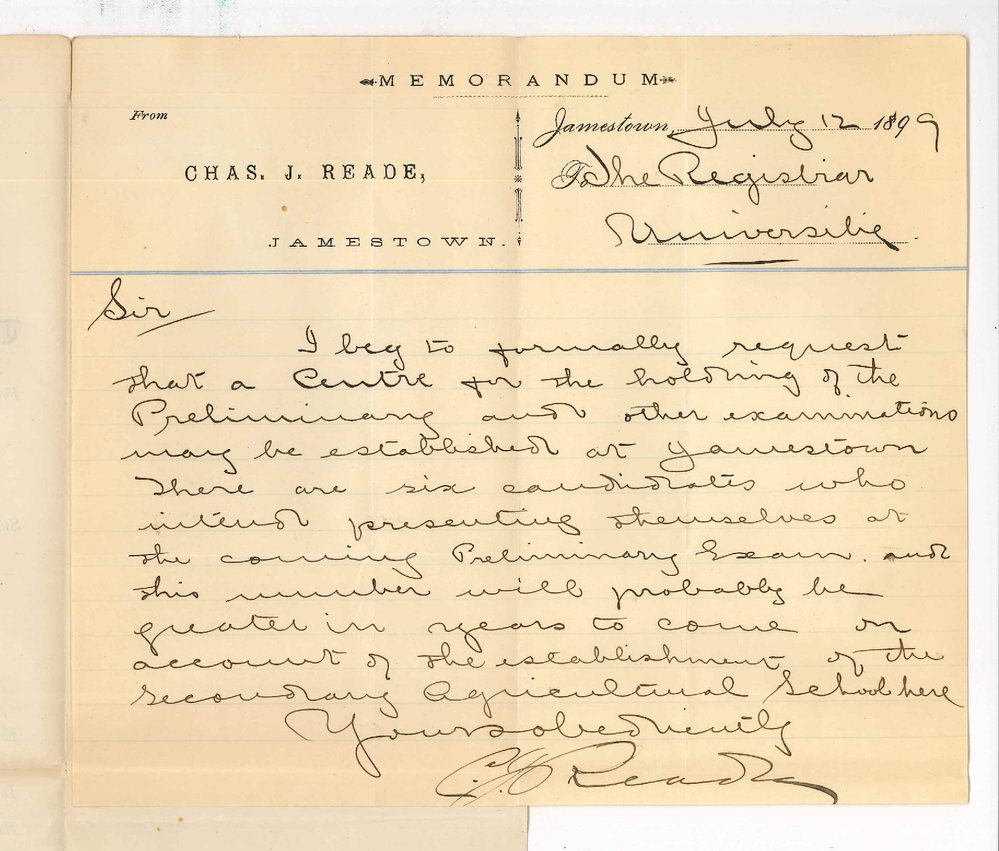 MEMORANDUM
From
Jamestown, July 12 1899
CHAS. J. READE,
To The Registrar
University
JAMESTOWN.
Sir
I beg to formally request
that a Centre for the holding of the
Preliminary and other examinations
may be established at Jamestown
There are six candidates who
intend presenting themselves at
the coming Preliminary Exam. and
this number will probably be
greater in years to come on
account of the establishment of the
Secondary Agricultural School here
Yours obediently
C. J. Reade